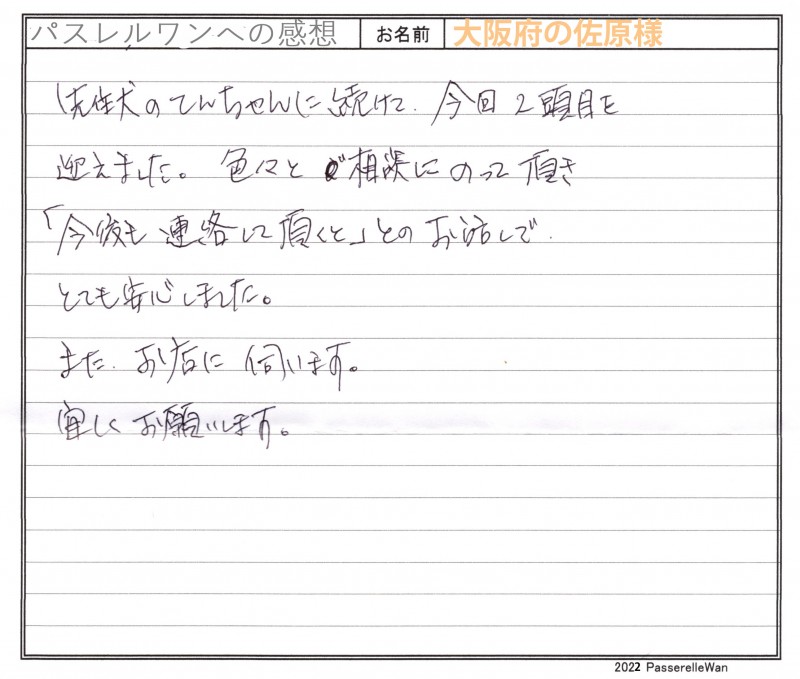 パスレルワンへの感想 お名前 大阪府の佐原様
先住犬のてんちゃんに続けて、今回2頭目を
迎えました。色々とご相談にのって頂き
「今後も連絡して頂くと」とのお話しで、
とても安心しました。
また、お店に伺います。
宜しくお願いします。
2022 PasserelleWan